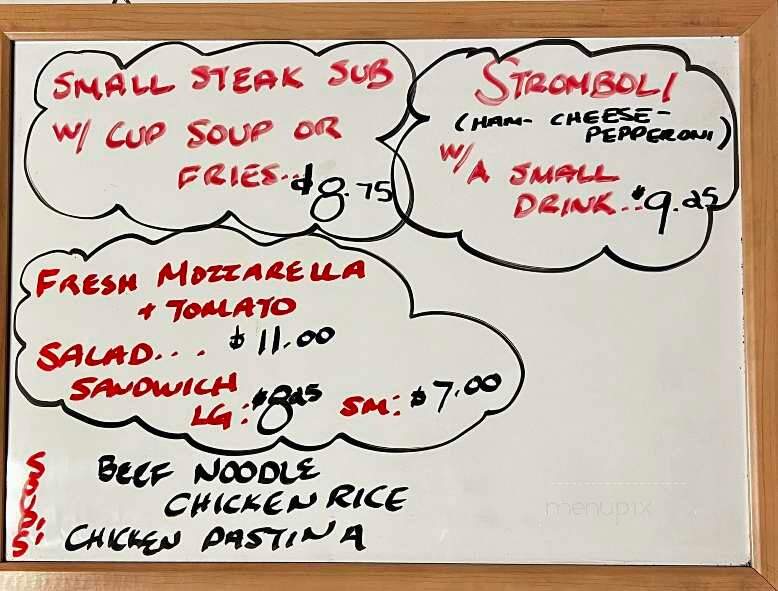 SMALL STEAK SUB
W/ CUP SOUP OR
FRIES... $8.75
STROMBOLI
(HAM- CHEESE-
PEPPERONI)
W/A SMALL
DRINK... $9.25
FRESH MOZZARELLA
+ TOMATO
SALAD... $11.00
SANDWICH
LG: $8.25 SM: $7.00
SOUPS!
BEEF NOODLE
CHICKEN RICE
CHICKEN PASTINA
menupix